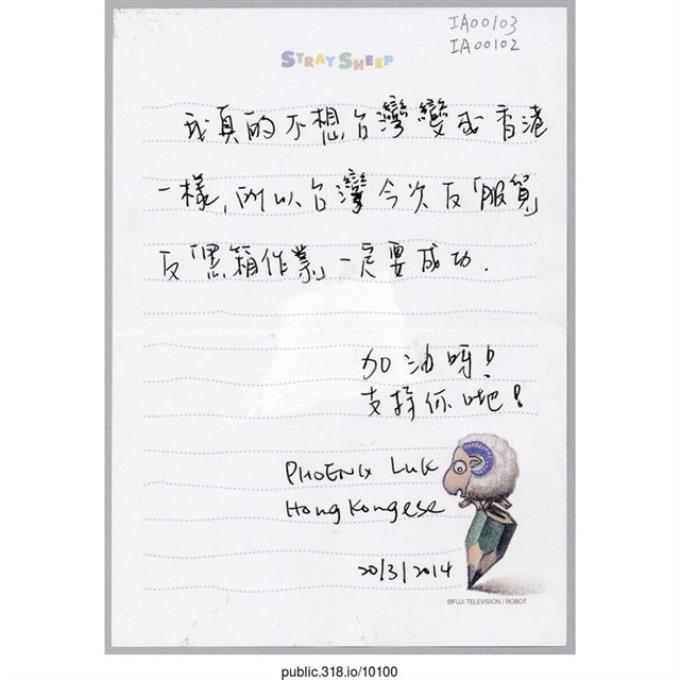 IA00103
IA00102
STRAY SHEEP
我真的不想台灣變成香港
一樣,所以台灣今次反「服貿」
反「黑箱作業」一定要成功.
加油呀!
支持你哋!
PHOENIX LUK
HongKongese
20/3/2014
©FUJI TELEVISION / ROBOT
public.318.io/10100